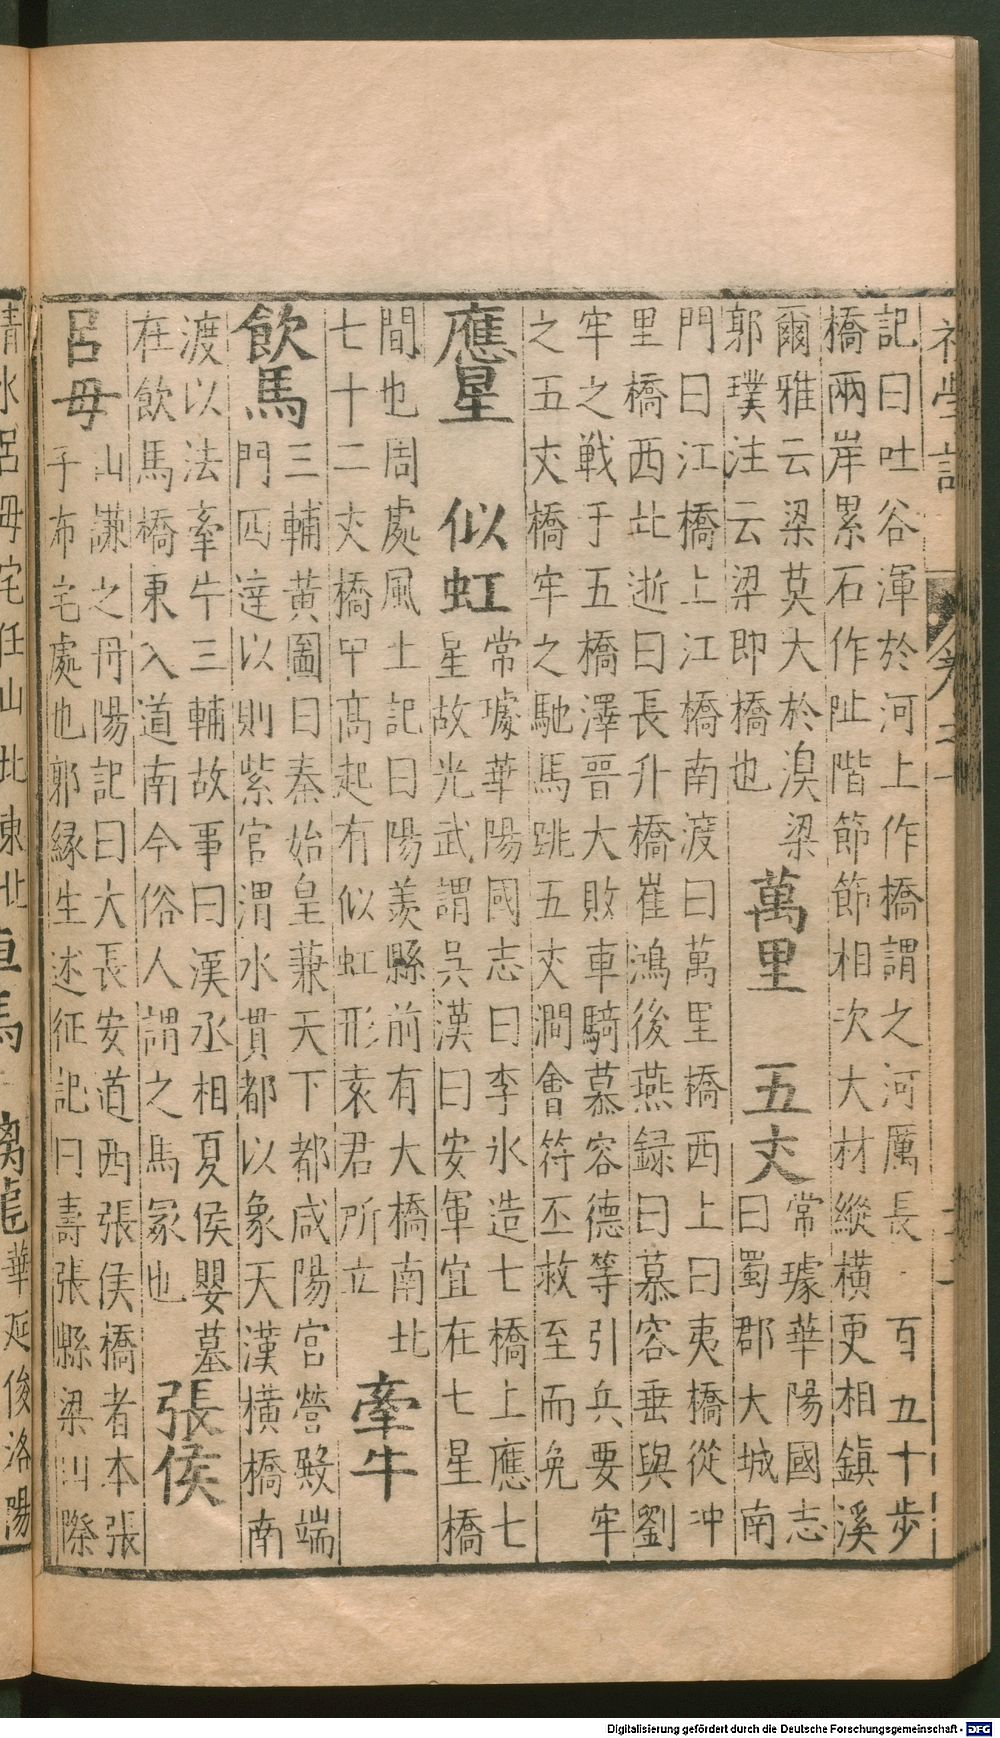 記曰吐谷渾於河上作橋謂之河厲長百五十步
橋兩岸累石作阯階節節相次大材縱橫更相鎮溪
爾雅云梁莫大於湨梁
郭璞注云梁即橋也
萬里 五丈
常璩華陽國志
曰蜀郡大城南
門曰江橋上江橋南渡曰萬里橋西上曰夷橋從冲
里橋西北逝曰長升橋崔鴻後燕録曰慕容垂與劉
牢之戰于五橋澤晉大敗車騎慕容德等引兵要牢
之五丈橋牢之馳馬跳五丈澗會符丕救至而免
應星 似虹
常璩華陽國志曰李氷造七橋上應七
星故光武謂吳漢曰安軍宜在七星橋
間也周處風土記曰陽羨縣前有大橋南北
七十二丈橋中高起有似虹形袁君所立
牽牛
飲馬
三輔黃圖曰秦始皇兼天下都咸陽宮營殿端
門四達以則紫宮渭水貫都以象天漢橫橋南
渡以法牽牛三輔故事曰漢丞相夏侯嬰墓
在飲馬橋東入道南今俗人謂之馬冢也
張侯
呂母
山謙之丹陽記曰大長安道西張侯橋者本張
子布宅處也郭緣生述征記曰壽張縣梁山際
清水呂母宅任山北東北
華延俊洛陽
Digitalisierung gefördert durch die Deutsche Forschungsgemeinschaft - DFG